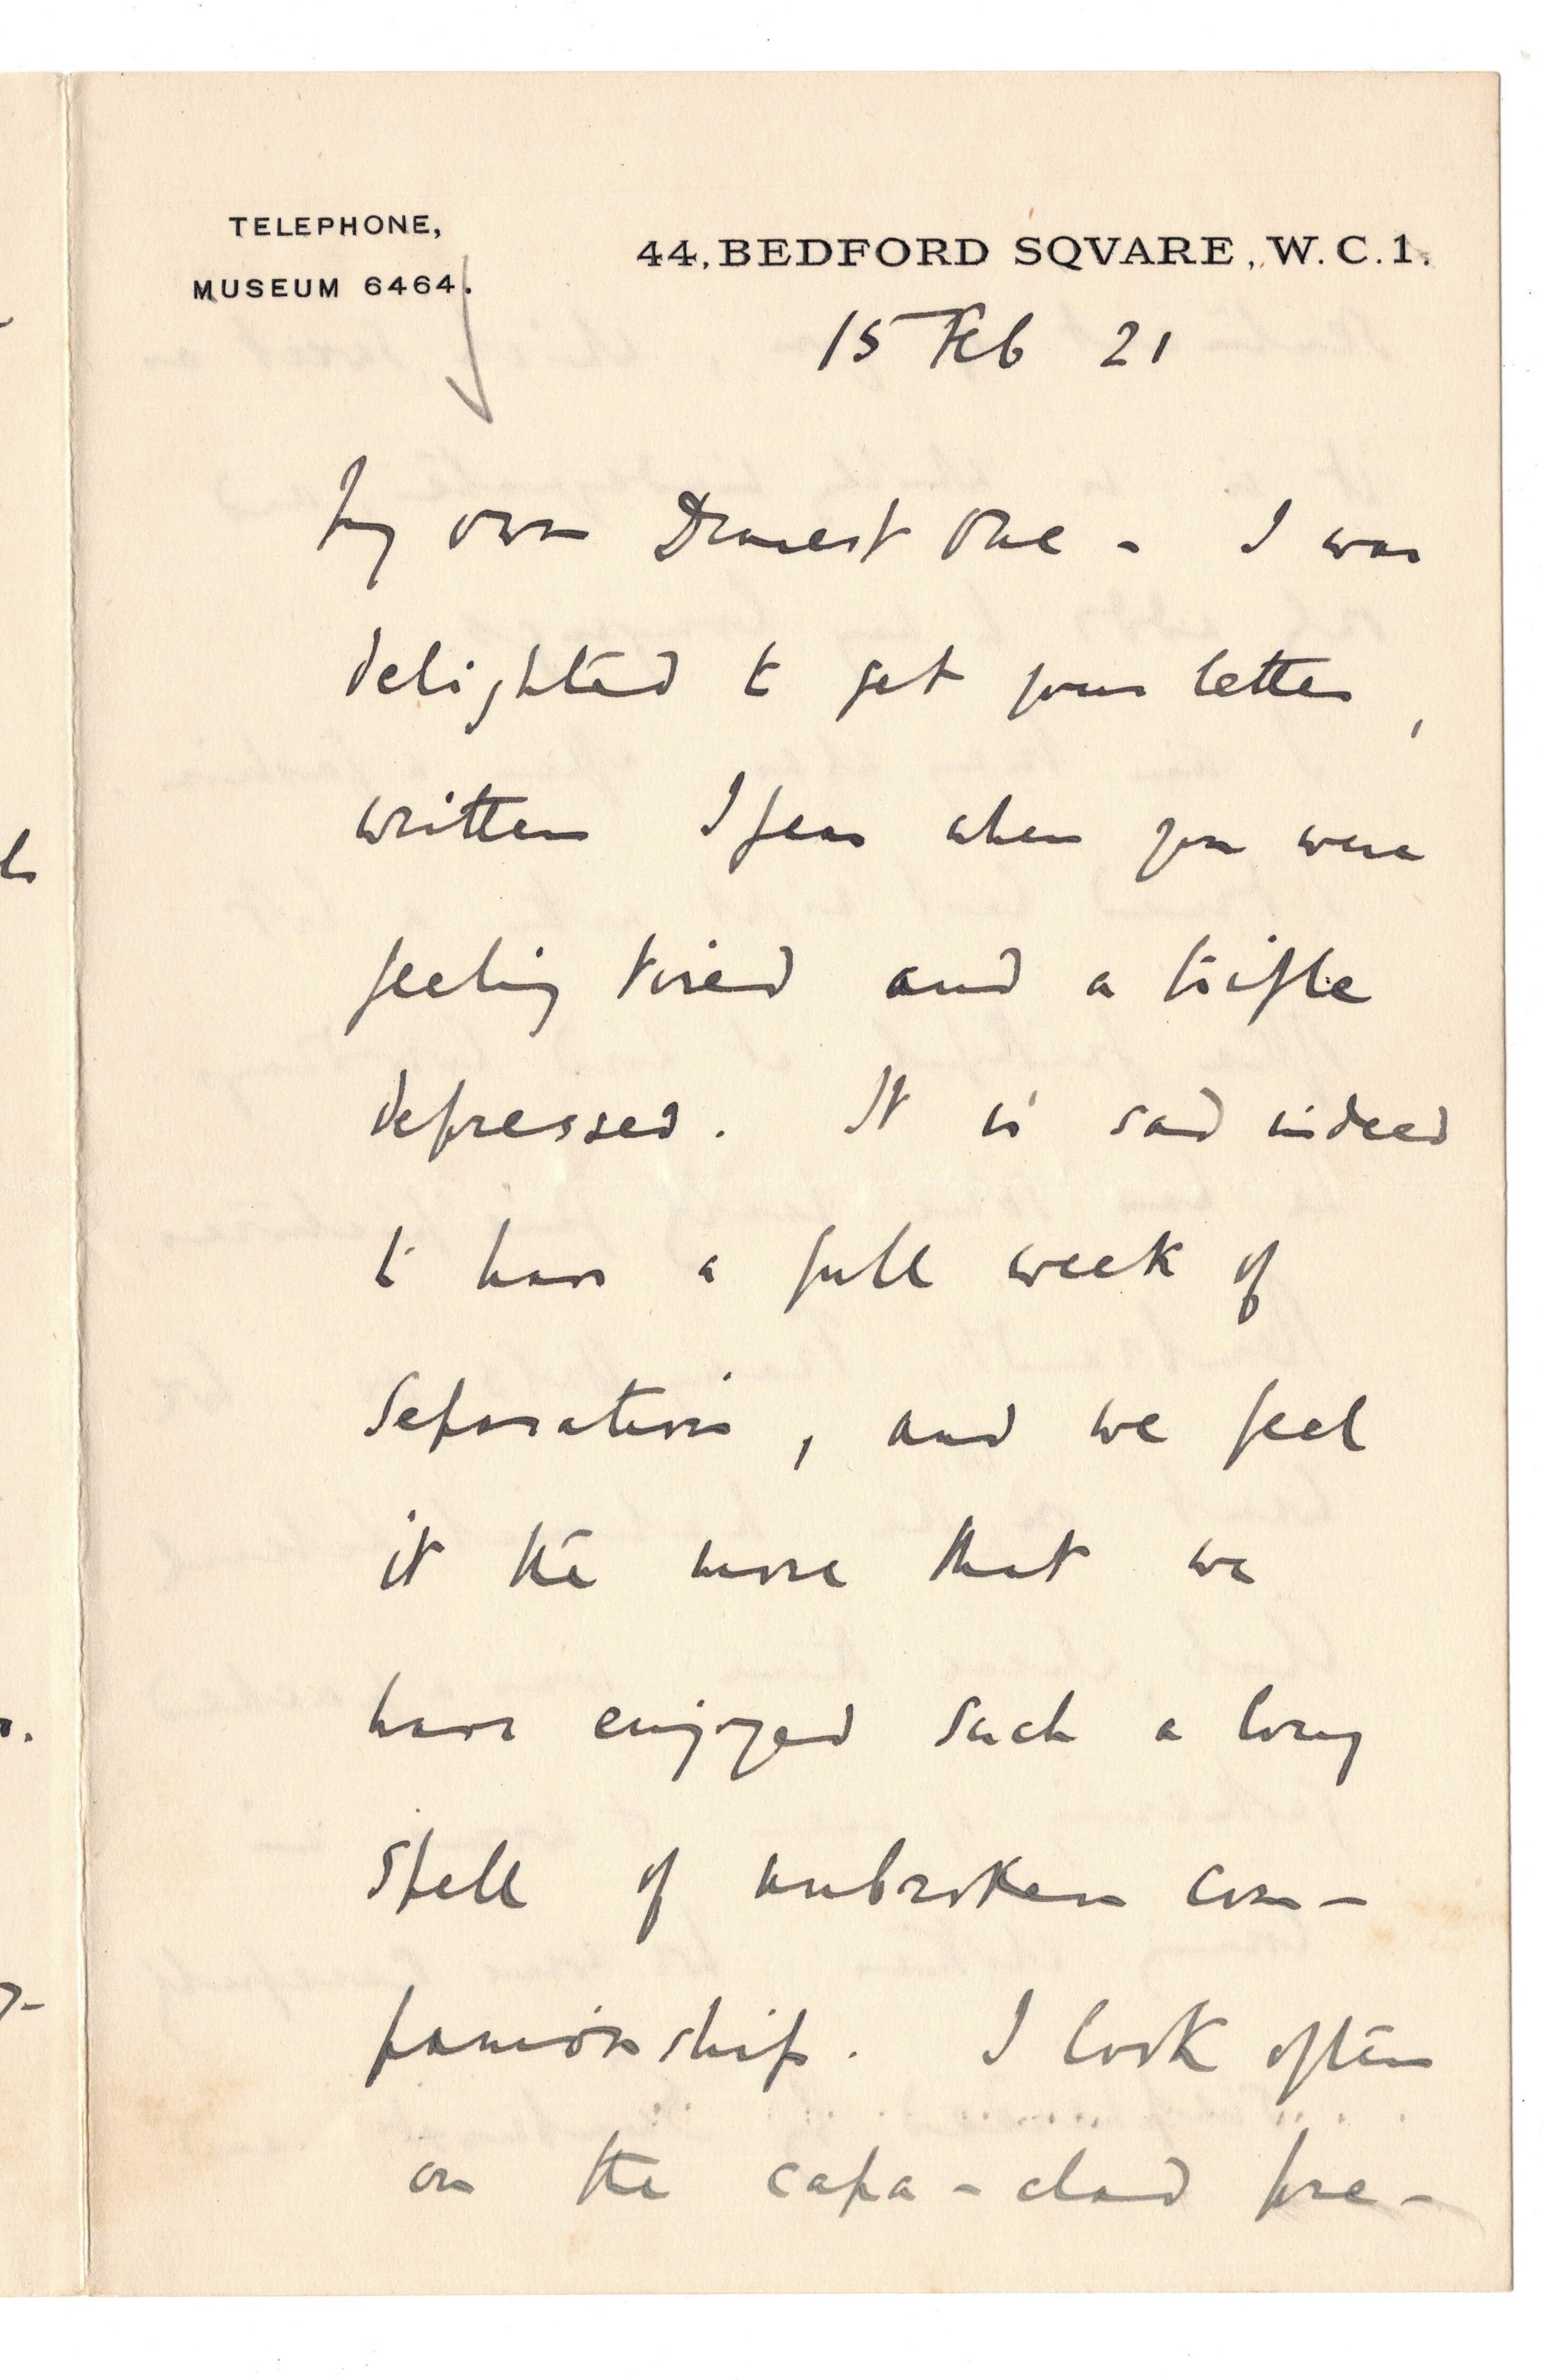 TELEPHONE,
MUSEUM 6464.
44, BEDFORD SQVARE, W.C.1.
15 Feb 21
My own Dearest One - I was
delighted to get your letter,
written I fear when you were
feeling tired and a trifle
depressed. It is sad indeed
to have a full week of
separation, and we feel
it the more that we
have enjoyed such a long
spell of unbroken com-
panionship. I look often
on the capa-clad pre-